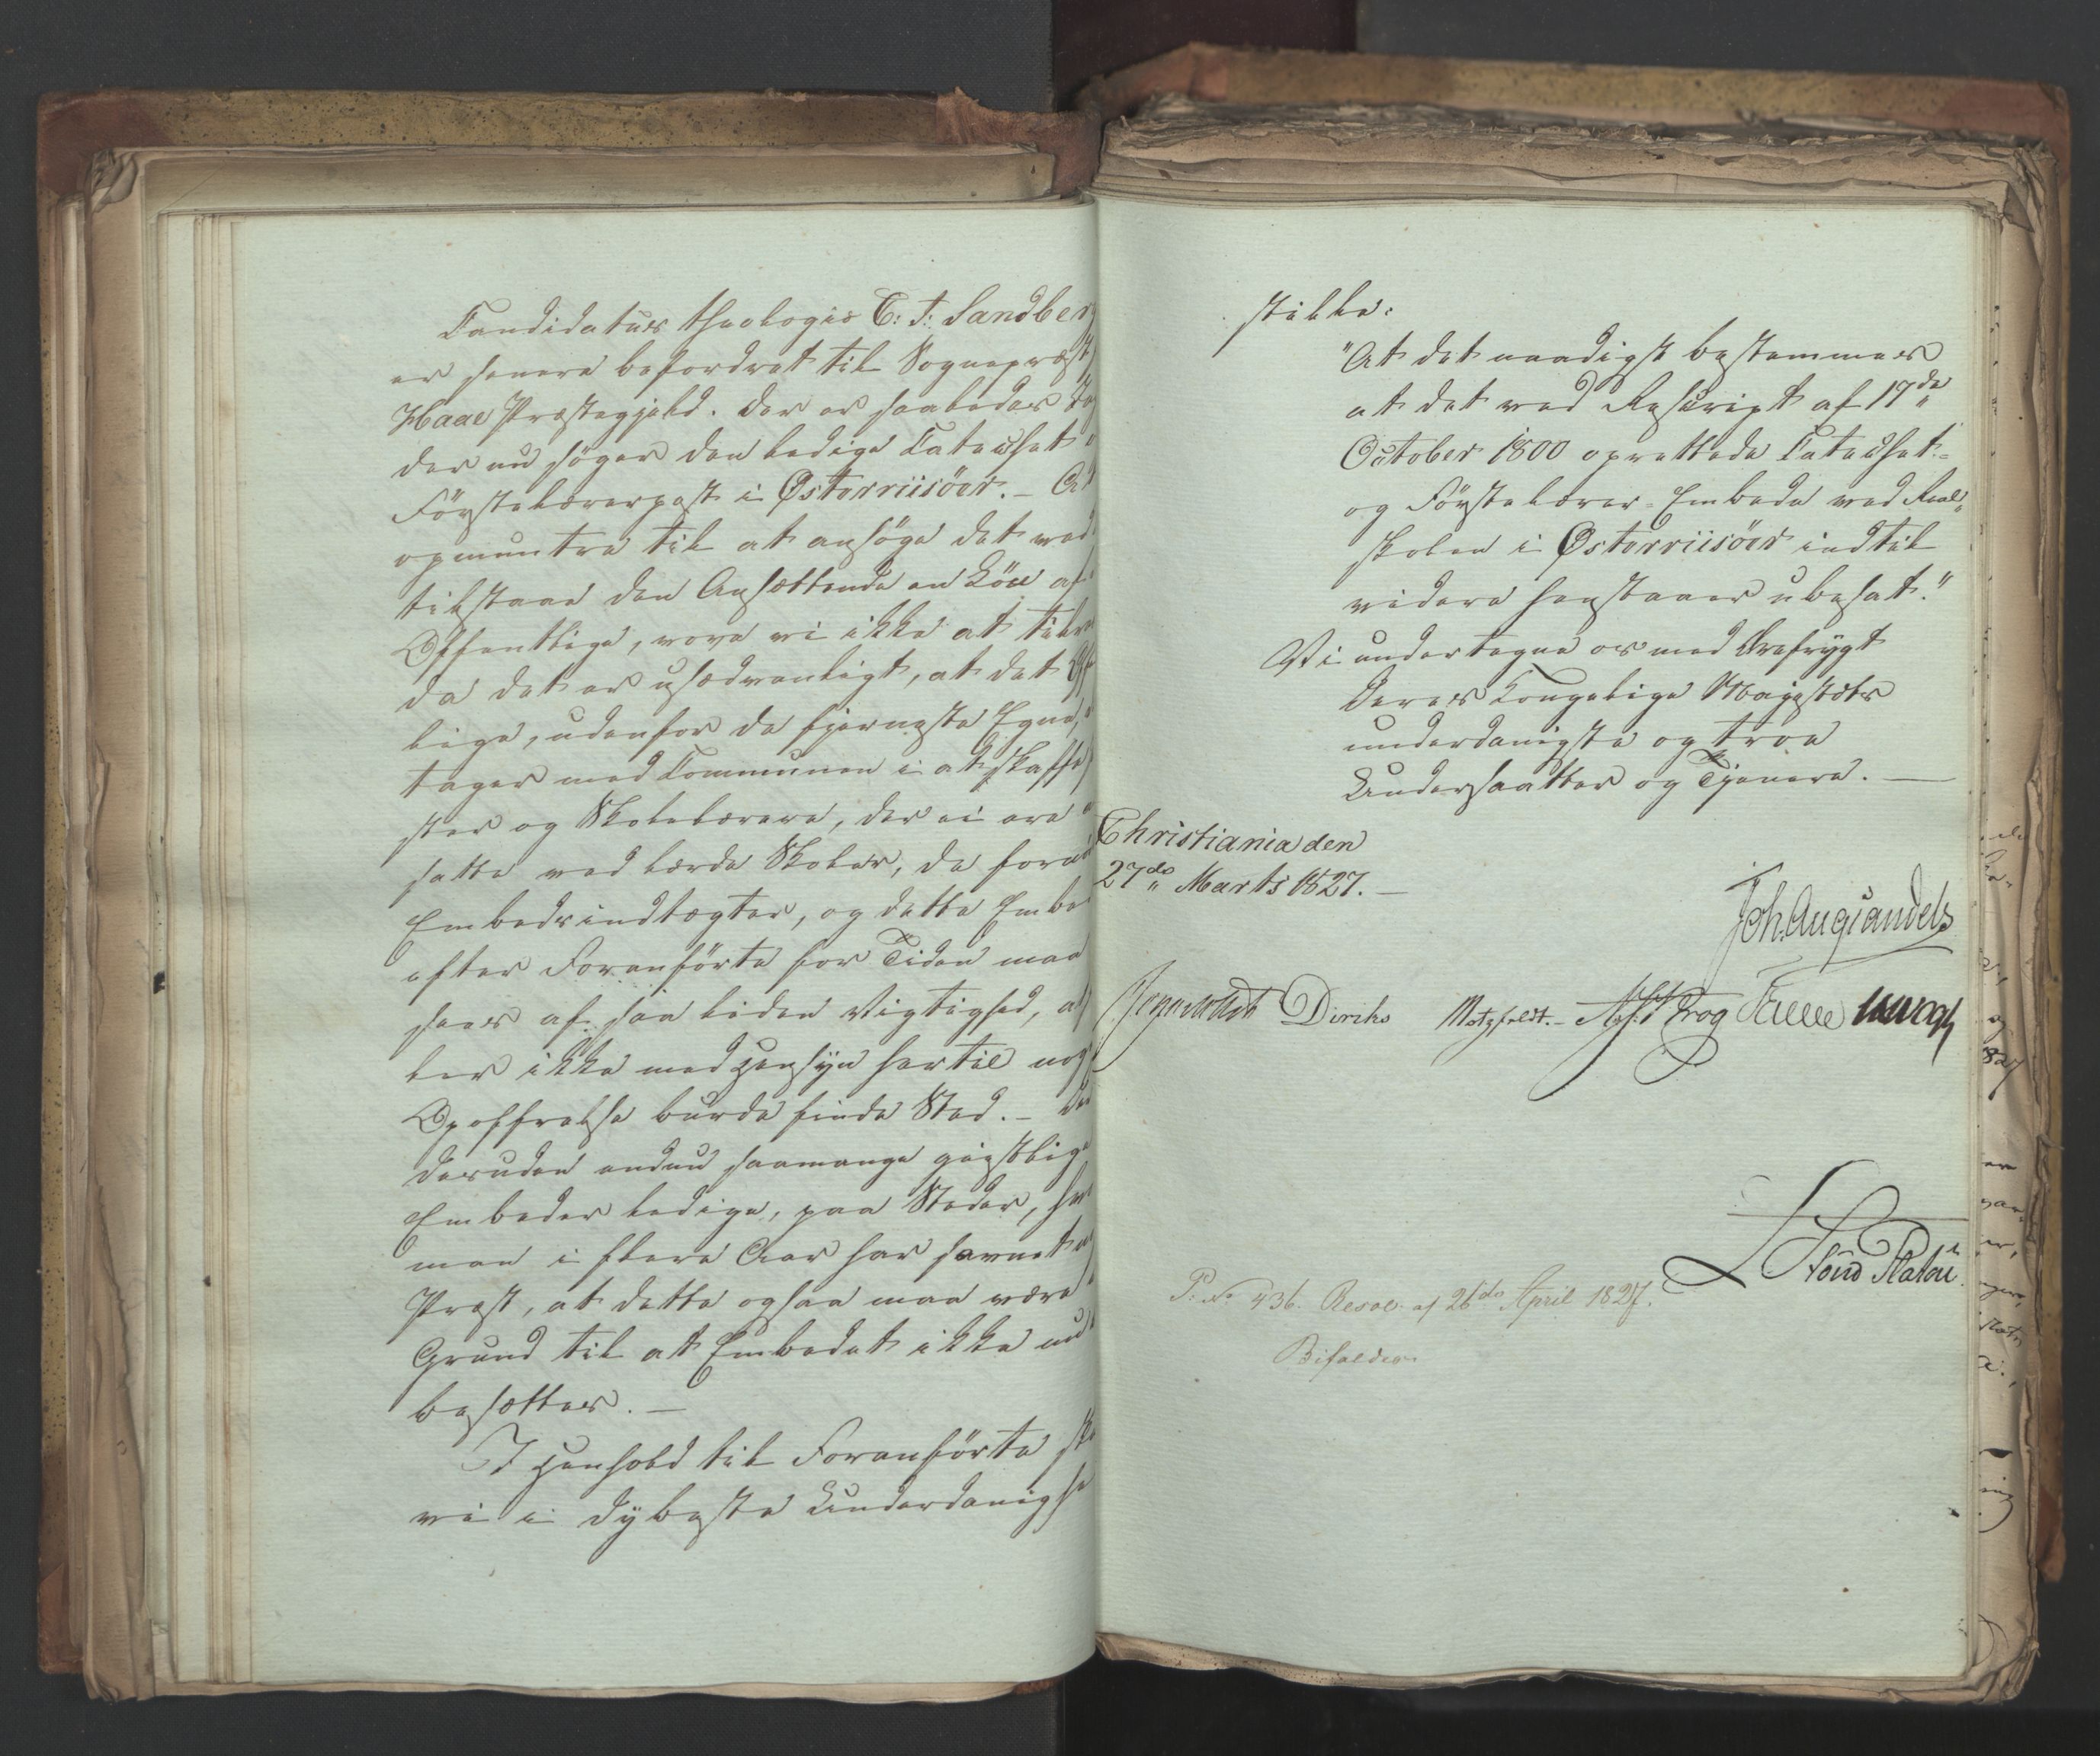 Candidatus theologiæ C: T: Sandberg
er senere befordret til Sognepræst
Haae Præstegjeld. Der er saaledes
der nu søger den ledige Catechet
Førstelærerpost i Østerriisöer. – At
opmuntre til at ansøge det ved
tilstaae den Ansættende en Løn af
Offentlige, vove vi ikke at
da det er usædvanligt, at det
lige, udenfor de fjerneste Egne,
tager med Communen i at skaffe
ster og Skolelærere, der ei ere
satte ved lærde Skoler, de
Embedsindtægter, og dette
efter Foranførte for Tiden maa
sees af saa liden Vigtighed,
ler ikke med Hensyn hertil
Opoffrelse burde finde Sted. –
desuden endnu saamange geistlige
Embeder ledige, paa Steder,
man i flere Aar har savnet
Præst, at dette ogsaa maa være
Grund til at Embedet ikke nu
besættes. –
I Henhold til Foranførte
vi i dybeste
stille:
"At det naadigst bestemmes
at det ved Rescript af 17de
October 1800 oprettede Catechet-
og Førstelærer-Embede ved Real-
skolen i Østerriisöer indtil
videre henstaaer ubesat."
Vi undertegne os med Ærefrygt
Deres Kongelige Majestæts
underdanigste og troe
Undersaatter og Tjenere. –
Christiania den
27de Marts 1827. –
Joh. Aug Sandels
Diriks Motzfeldt. – Krog Falsen
P. No 436. Resol. af 26de April 1827.
Bifaldes